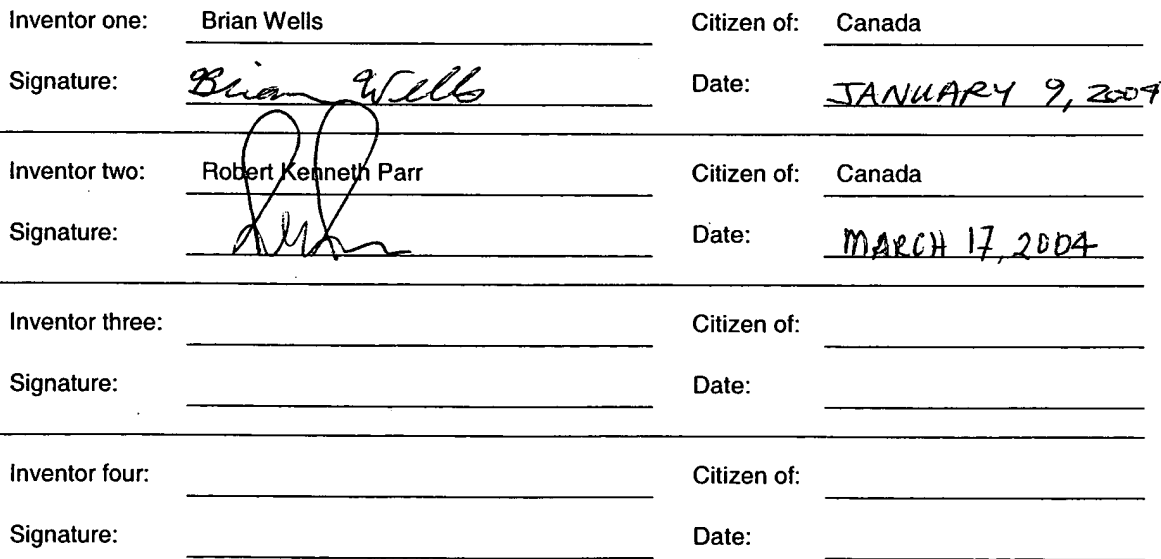 Inventor one: Brian Wells Citizen of: Canada
Signature: Brian Wells Date: JANUARY 9, 2004
Inventor two: Robert Kenneth Parr Citizen of: Canada
Signature: Date: MARCH 17, 2004
Inventor three: Citizen of:
Signature: Date:
Inventor four: Citizen of:
Signature: Date: